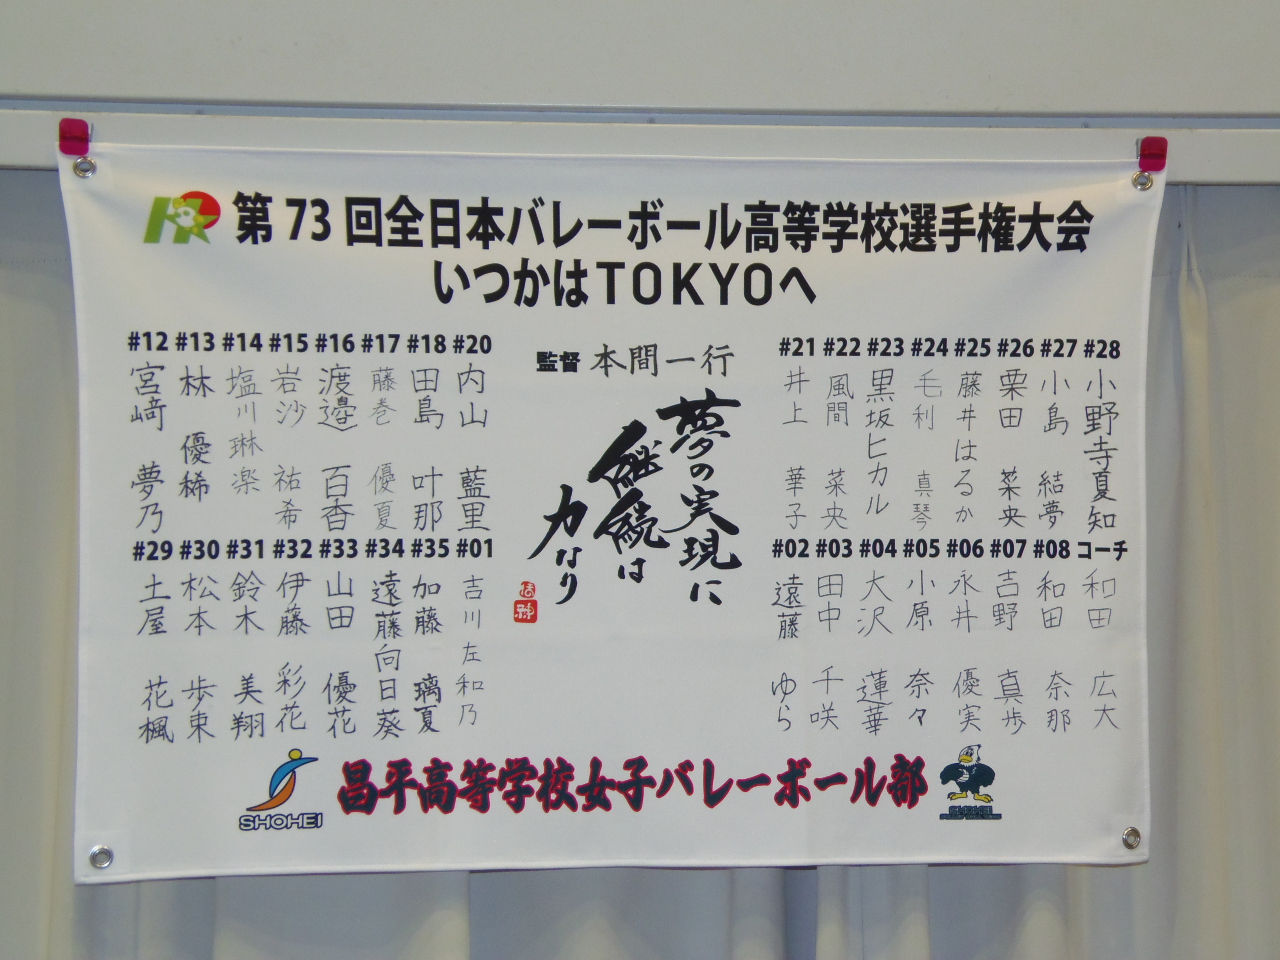 第73回全日本バレーボール高等学校選手権大会
いつかはTOKYOへ
#12 #13 #14 #15 #16 #17 #18 #20
宮﨑 夢乃
林 優稀
塩川琳楽
岩沙 祐希
渡邉 百香
藤巻 優夏
田島 叶那
内山 藍里
監督 本間一行
夢の実現に
継続は
力なり
#21 #22 #23 #24 #25 #26 #27 #28
井上 華子
風間 菜央
黒坂ヒカル
毛利 真琴
藤井はるか
栗田 菜央
小島 結夢
小野寺夏知
#29 #30 #31 #32 #33 #34 #35 #01
土屋 花楓
松本 歩東
鈴木 美翔
伊藤 彩花
山田 優花
遠藤向日葵
加藤 璃夏
吉川左和乃
#02 #03 #04 #05 #06 #07 #08 コーチ
遠藤 ゆら
田中 千咲
大沢 蓮華
小原 奈々
永井 優実
吉野 真歩
和田 奈那
和田 広大
SHOHEI
昌平高等学校女子バレーボール部
SHOHEI